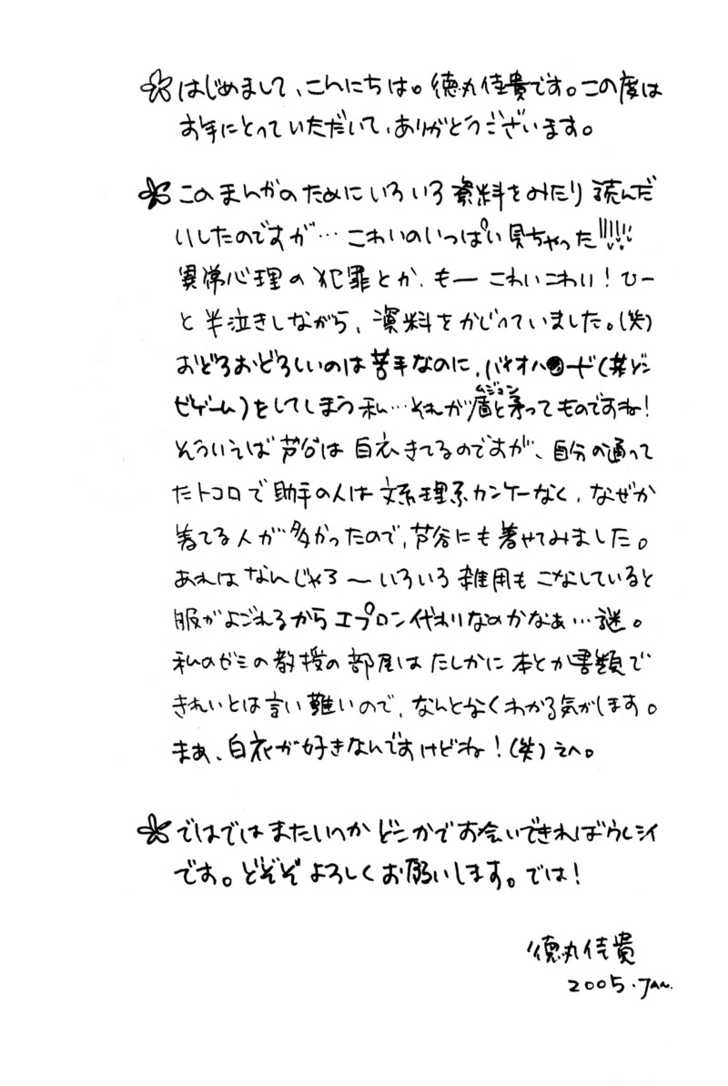 はじめまして、こんにちは。徳丸佳貴です。この度は
お手にとっていただいて、ありがとうございます。
このまんがのためにいろいろ資料をみたり読んだ
りしたのですが…こわいのいっぱい見ちゃった!!!!!
異常心理の犯罪とか、もーこわいこわい!ひー
と半泣きしながら、資料をかじっていました。(笑)
おどろおどろしいのは苦手なのに、バイオハ●ード(某ゾン
ビゲーム)をしてしまう私…それが盾と矛ってものですね!
ムジュン
そういえば芦谷は白衣きてるのですが、自分の通って
たトコロで助手の人は文系理系カンケーなく、なぜか
着てる人が多かったので、芦谷にも着せてみました。
あれはなんじゃろ〜いろいろ雑用もこなしていると
服がよごれるからエプロン代わりなのかなぁ…謎。
私のゼミの教授の部屋はたしかに本とか書類で
きれいとは言い難いので、なんとなくわかる気がします。
まぁ、白衣が好きなんですけどね!(笑)えへ。
ではではまたいつかどこかでお会いできればウレシイ
です。どぞぞよろしくお願いします。では!
徳丸佳貴
2005.JAN.